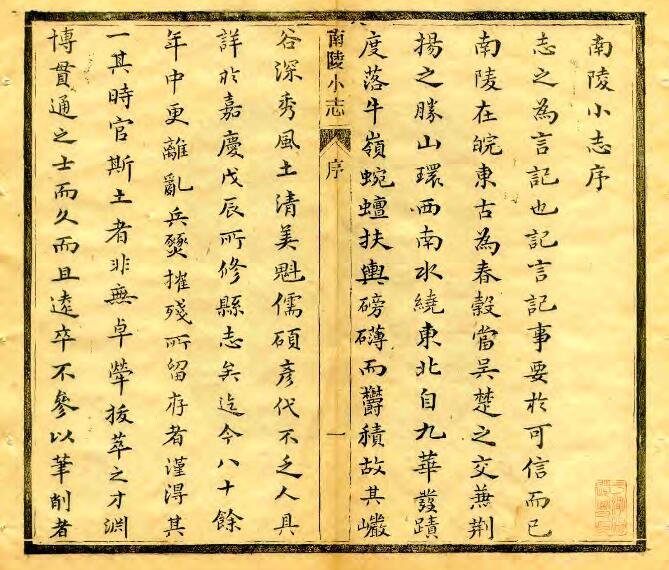 南陵小志序
志之為言記也記言記事要於可信而已
南陵在皖東古為春穀當吳楚之交兼荆
揚之勝山環西南水繞東北自九華發蹟
度落牛嶺蜿蟺扶輿磅礡而欝積故其巖
南陵小志
序
一
谷深秀風土清美魁儒碩彥代不乏人具
詳於嘉慶戊辰所修縣志矣迄今八十餘
年中更離亂兵燹摧殘所留存者謹得其
一其時官斯土者非無卓犖拔萃之才淵
博貫通之士而久而且遠卒不參以筆削者